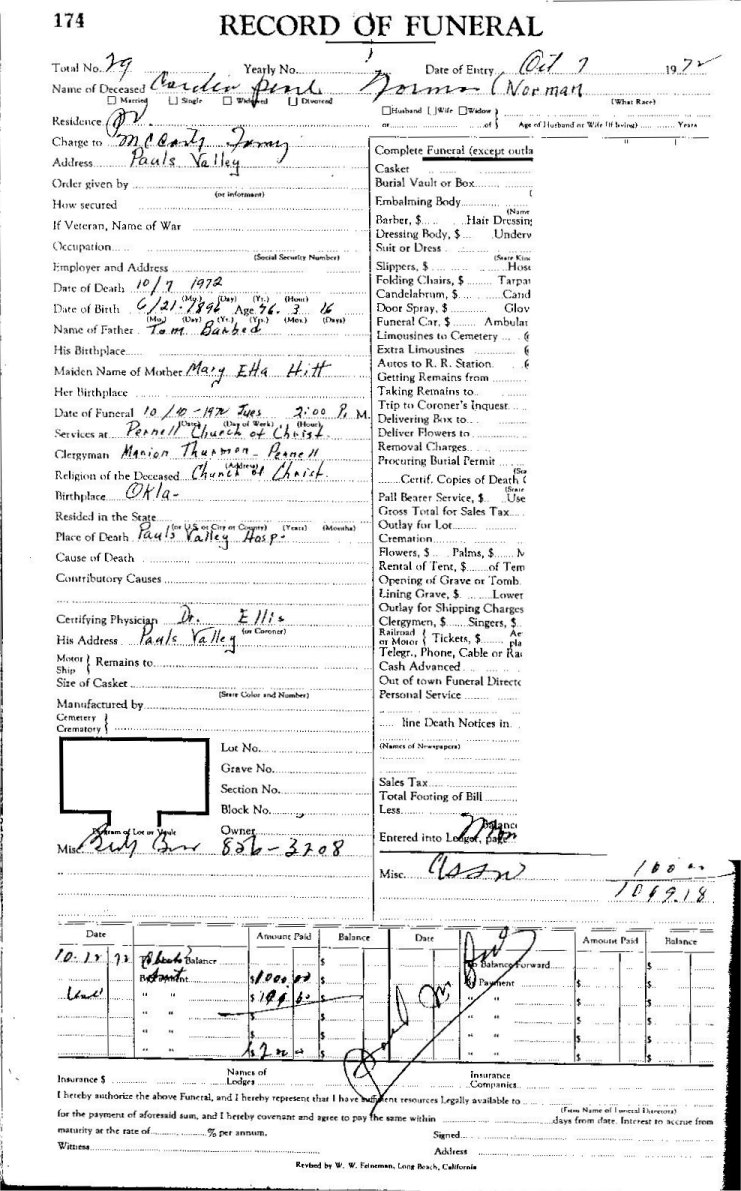 174
RECORD OF FUNERAL
Total No. 29 Yearly No. Date of Entry Oct 7 1972
Name of Deceased Norman (Norman
Married Single Widowed Divorced (What Race)
Husband Wife Widow
Residence
or of Age of Husband or Wife (if living) Years
Charge to McCarty Tommy
Address Pauls Valley
Order given by
(or informant)
How secured
If Veteran, Name of War
Occupation
(Social Security Number)
Employer and Address
Date of Death 10/7 1972
(Mo.) (Day) (Yr.) (Hour)
Date of Birth 6/21-1896 Age 76 3 16
(Mo.) (Day) (Yr.) (Yrs.) (Mos.) (Days)
Name of Father Tom
His Birthplace
Maiden Name of Mother Mary Etta Hitt
Her Birthplace
Date of Funeral 10/10-1972 Tues 2:00 P. M.
(Date) (Day of Week) (Hour)
Services at Pernell Church of Christ
Clergyman Manion Thurmon - Pernell
(Address)
Religion of the Deceased Church of Christ
Birthplace Okla-
Resided in the State
(or U.S. or City or County) (Years) (Months)
Place of Death Pauls Valley Hosp.
Cause of Death
Contributory Causes
Certifying Physician Dr. Ellis
(or Coroner)
His Address Pauls Valley
Motor Ship } Remains to
Size of Casket
(State Color and Number)
Manufactured by
Cemetery
Crematory
Lot No.
Grave No.
Section No.
Block No.
Diagram of Lot or Vault
Owner
Misc. 826-3208
Complete Funeral (except outla
Casket
Burial Vault or Box
Embalming Body
(Name
Barber, $ Hair Dressing
Dressing Body, $ Underw
Suit or Dress
(State Kind
Slippers, $ Hose
Folding Chairs, $ Tarpau
Candelabrum, $ Cand
Door Spray, $ Glov
Funeral Car, $ Ambulan
Limousines to Cemetery
Extra Limousines
Autos to R. R. Station
Getting Remains from
Taking Remains to
Trip to Coroner's Inquest
Delivering Box to
Deliver Flowers to
Removal Charges
Procuring Burial Permit
(Sta
Certif. Copies of Death C
(State
Pall Bearer Service, $ Use
Gross Total for Sales Tax
Outlay for Lot
Cremation
Flowers, $ Palms, $ M
Rental of Tent, $ of Tem
Opening of Grave or Tomb
Lining Grave, $ Lower
Outlay for Shipping Charges
Clergymen, $ Singers, $
Railroad or Motor { Tickets, $ Ae pla
Telegr., Phone, Cable or Rad
Cash Advanced
Out of town Funeral Directo
Personal Service
line Death Notices in
(Names of Newspapers)
Sales Tax
Total Footing of Bill
Less
Balance
Entered into Ledger, page
Misc.
1069.18
Date Amount Paid Balance Date Amount Paid Balance
10-12 72 Balance To Balance Forward
By Payment $1000.00 $ By Payment $ $
Insurance $ Names of Lodges Insurance Companies
I hereby authorize the above Funeral, and I hereby represent that I have sufficient resources Legally available to
(Firm Name of Funeral Directors)
for the payment of aforesaid sum, and I hereby covenant and agree to pay the same within days from date. Interest to accrue from
maturity at the rate of % per annum. Signed
Witness Address
Revised by W. W. Feineman, Long Beach, California